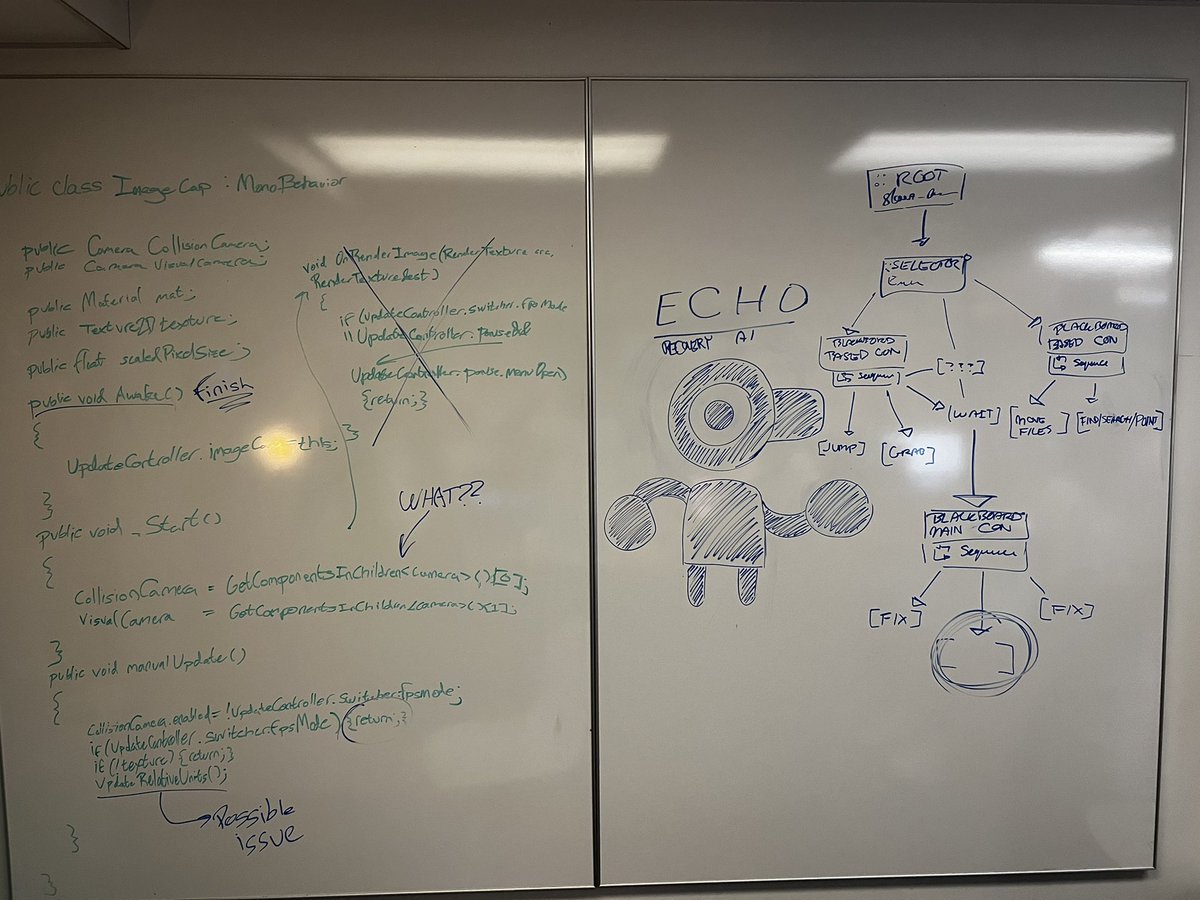 public class ImageCap : MonoBehavior
public Camera CollisionCamera;
public Camara VisualCamera;
public Material mat;
public Texture2D texture;
public float scaledPixelSize;
public void Awake() Finish
{
UpdateController.imageC =this;
}
public void Start()
{
CollisionCamera = GetComponentsInChildren<camera>()[0];
VisualCamera = GetComponentsInChildren<camera>()[1];
}
public void manualUpdate()
{
CollisionCamera.enabled=!UpdateController.Switcher.fpsmode;
if(UpdateController.Switcher.fpsMode) {return;}
if(!texture){return;}
UpdateRelativeUnits();
Possible
issue
}
}
void OnRenderImage(RenderTexture src,
RenderTexture dest)
{
if (UpdateController.switcher.fpsMode
|| UpdateController.paused
UpdateController.pause.menuOpen)
{return;}
}
WHAT??
ECHO
RECOVERY AI
ROOT
SELECTOR
BLACKBOARD
BASED CON
Sequence
[???]
BLACKBOARD
BASED CON
Sequence
[JUMP]
[GRAB]
[WAIT]
[MOVE
FILES]
[FIND/SEARCH/POINT]
BLACKBOARD
MAIN CON
Sequence
[FIX]
[ ]
[FIX]